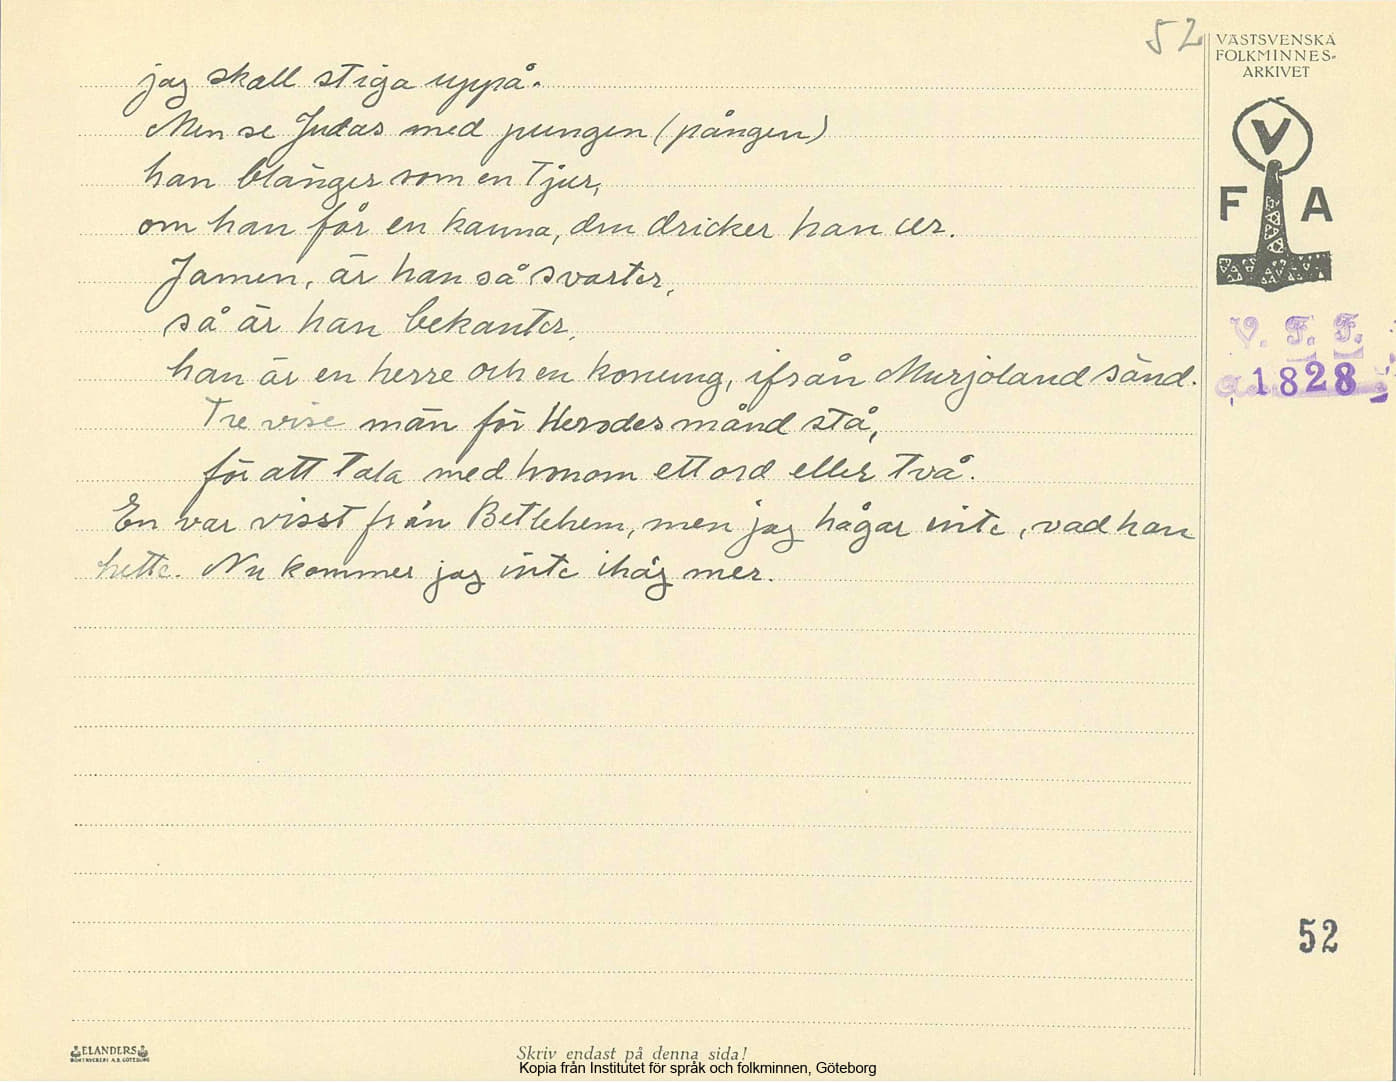 52
VÄSTSVENSKA
FOLKMINNES-
ARKIVET
V
F A
V. F. F.
1828
jag skall stiga uppå.
Men se Judas med pungen (pången)
han blänger som en tjur,
om han får en kanna, den dricker han ur.
Jamen, är han så svarter,
så är han bekanter,
han är en herre och en konung, ifrån Murjoland sänd.
Tre vise män för Herodes månd stå,
för att tala med honom ett ord eller två.
En var visst från Betlehem, men jag hågar inte, vad han
hette. Nu kommer jag inte ihåg mer.
52
ELANDERS
BOKTRYCKERI A.B. GÖTEBORG
Skriv endast på denna sida!
Kopia från Institutet för språk och folkminnen, Göteborg